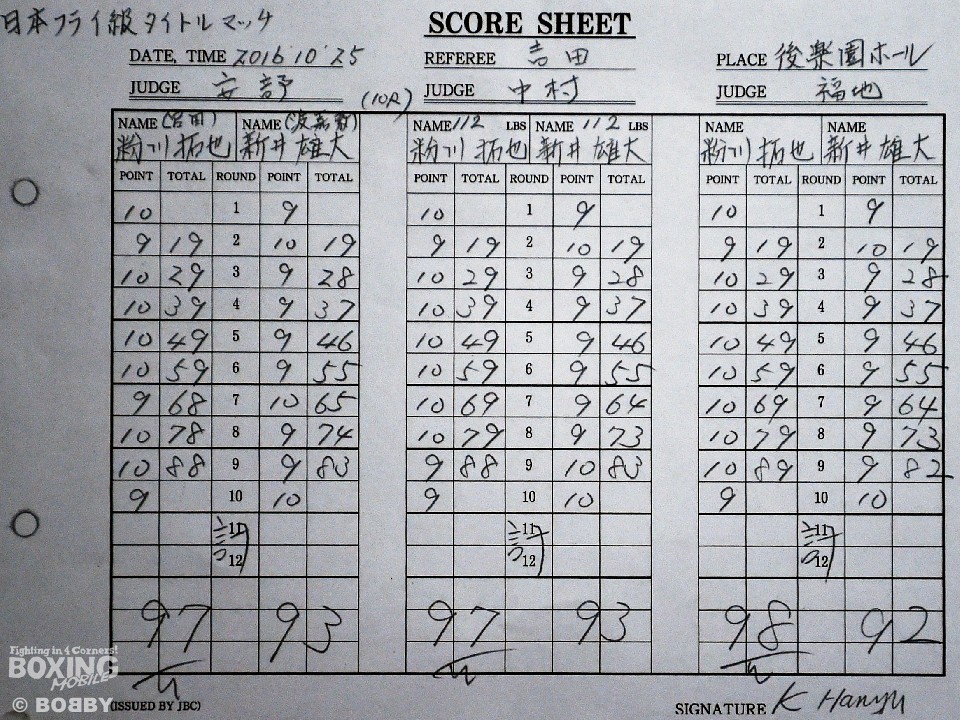 日本フライ級タイトルマッチ
SCORE SHEET
DATE, TIME 2016 10 25 REFEREE 吉田 PLACE 後楽園ホール
JUDGE 安部 JUDGE 中村 JUDGE 福地
(10R)
NAME (宮田) NAME NAME 112 LBS NAME 112 LBS NAME NAME
粉川拓也 新井雄大 粉川拓也 新井雄大 粉川拓也 新井雄大
POINT TOTAL ROUND POINT TOTAL POINT TOTAL ROUND POINT TOTAL POINT TOTAL ROUND POINT TOTAL
10 1 9 10 1 9 10 1 9
9 19 2 10 19 9 19 2 10 19 9 19 2 10 19
10 29 3 9 28 10 29 3 9 28 10 29 3 9 28
10 39 4 9 37 10 39 4 9 37 10 39 4 9 37
10 49 5 9 46 10 49 5 9 46 10 49 5 9 46
10 59 6 9 55 10 59 6 9 55 10 59 6 9 55
9 68 7 10 65 10 69 7 9 64 10 69 7 9 64
10 78 8 9 74 10 79 8 9 73 10 79 8 9 73
10 88 9 9 83 9 88 9 10 83 10 89 9 9 82
9 10 10 9 10 10 9 10 10
11 11 11
12 12 12
97 93 97 93 98 92
Fighting in 4 Corners!
BOXING
MOBILE
© BOBBY
(ISSUED BY JBC) SIGNATURE K Hanyu